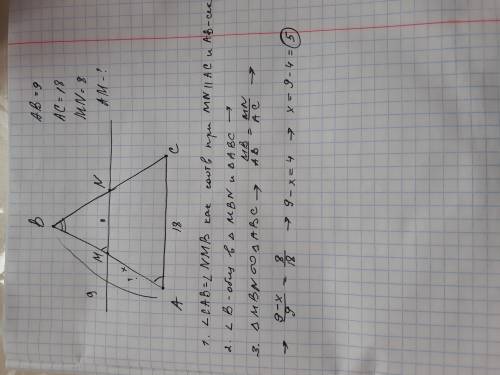 AB = 9
AC = 18
MN = 8
AM - ?
B
9
M
N
8
? x
A
18
C
1. ∠CAB = ∠NMB как соотв при MN || AC и AB - сек
2. ∠B - общ в △MBN и △ABC →
3. △MBN ∞ △ABC → MB/AB = MN/AC →
→ 9-x/9 = 8/18 → 9-x = 4 → x = 9-4 = 5